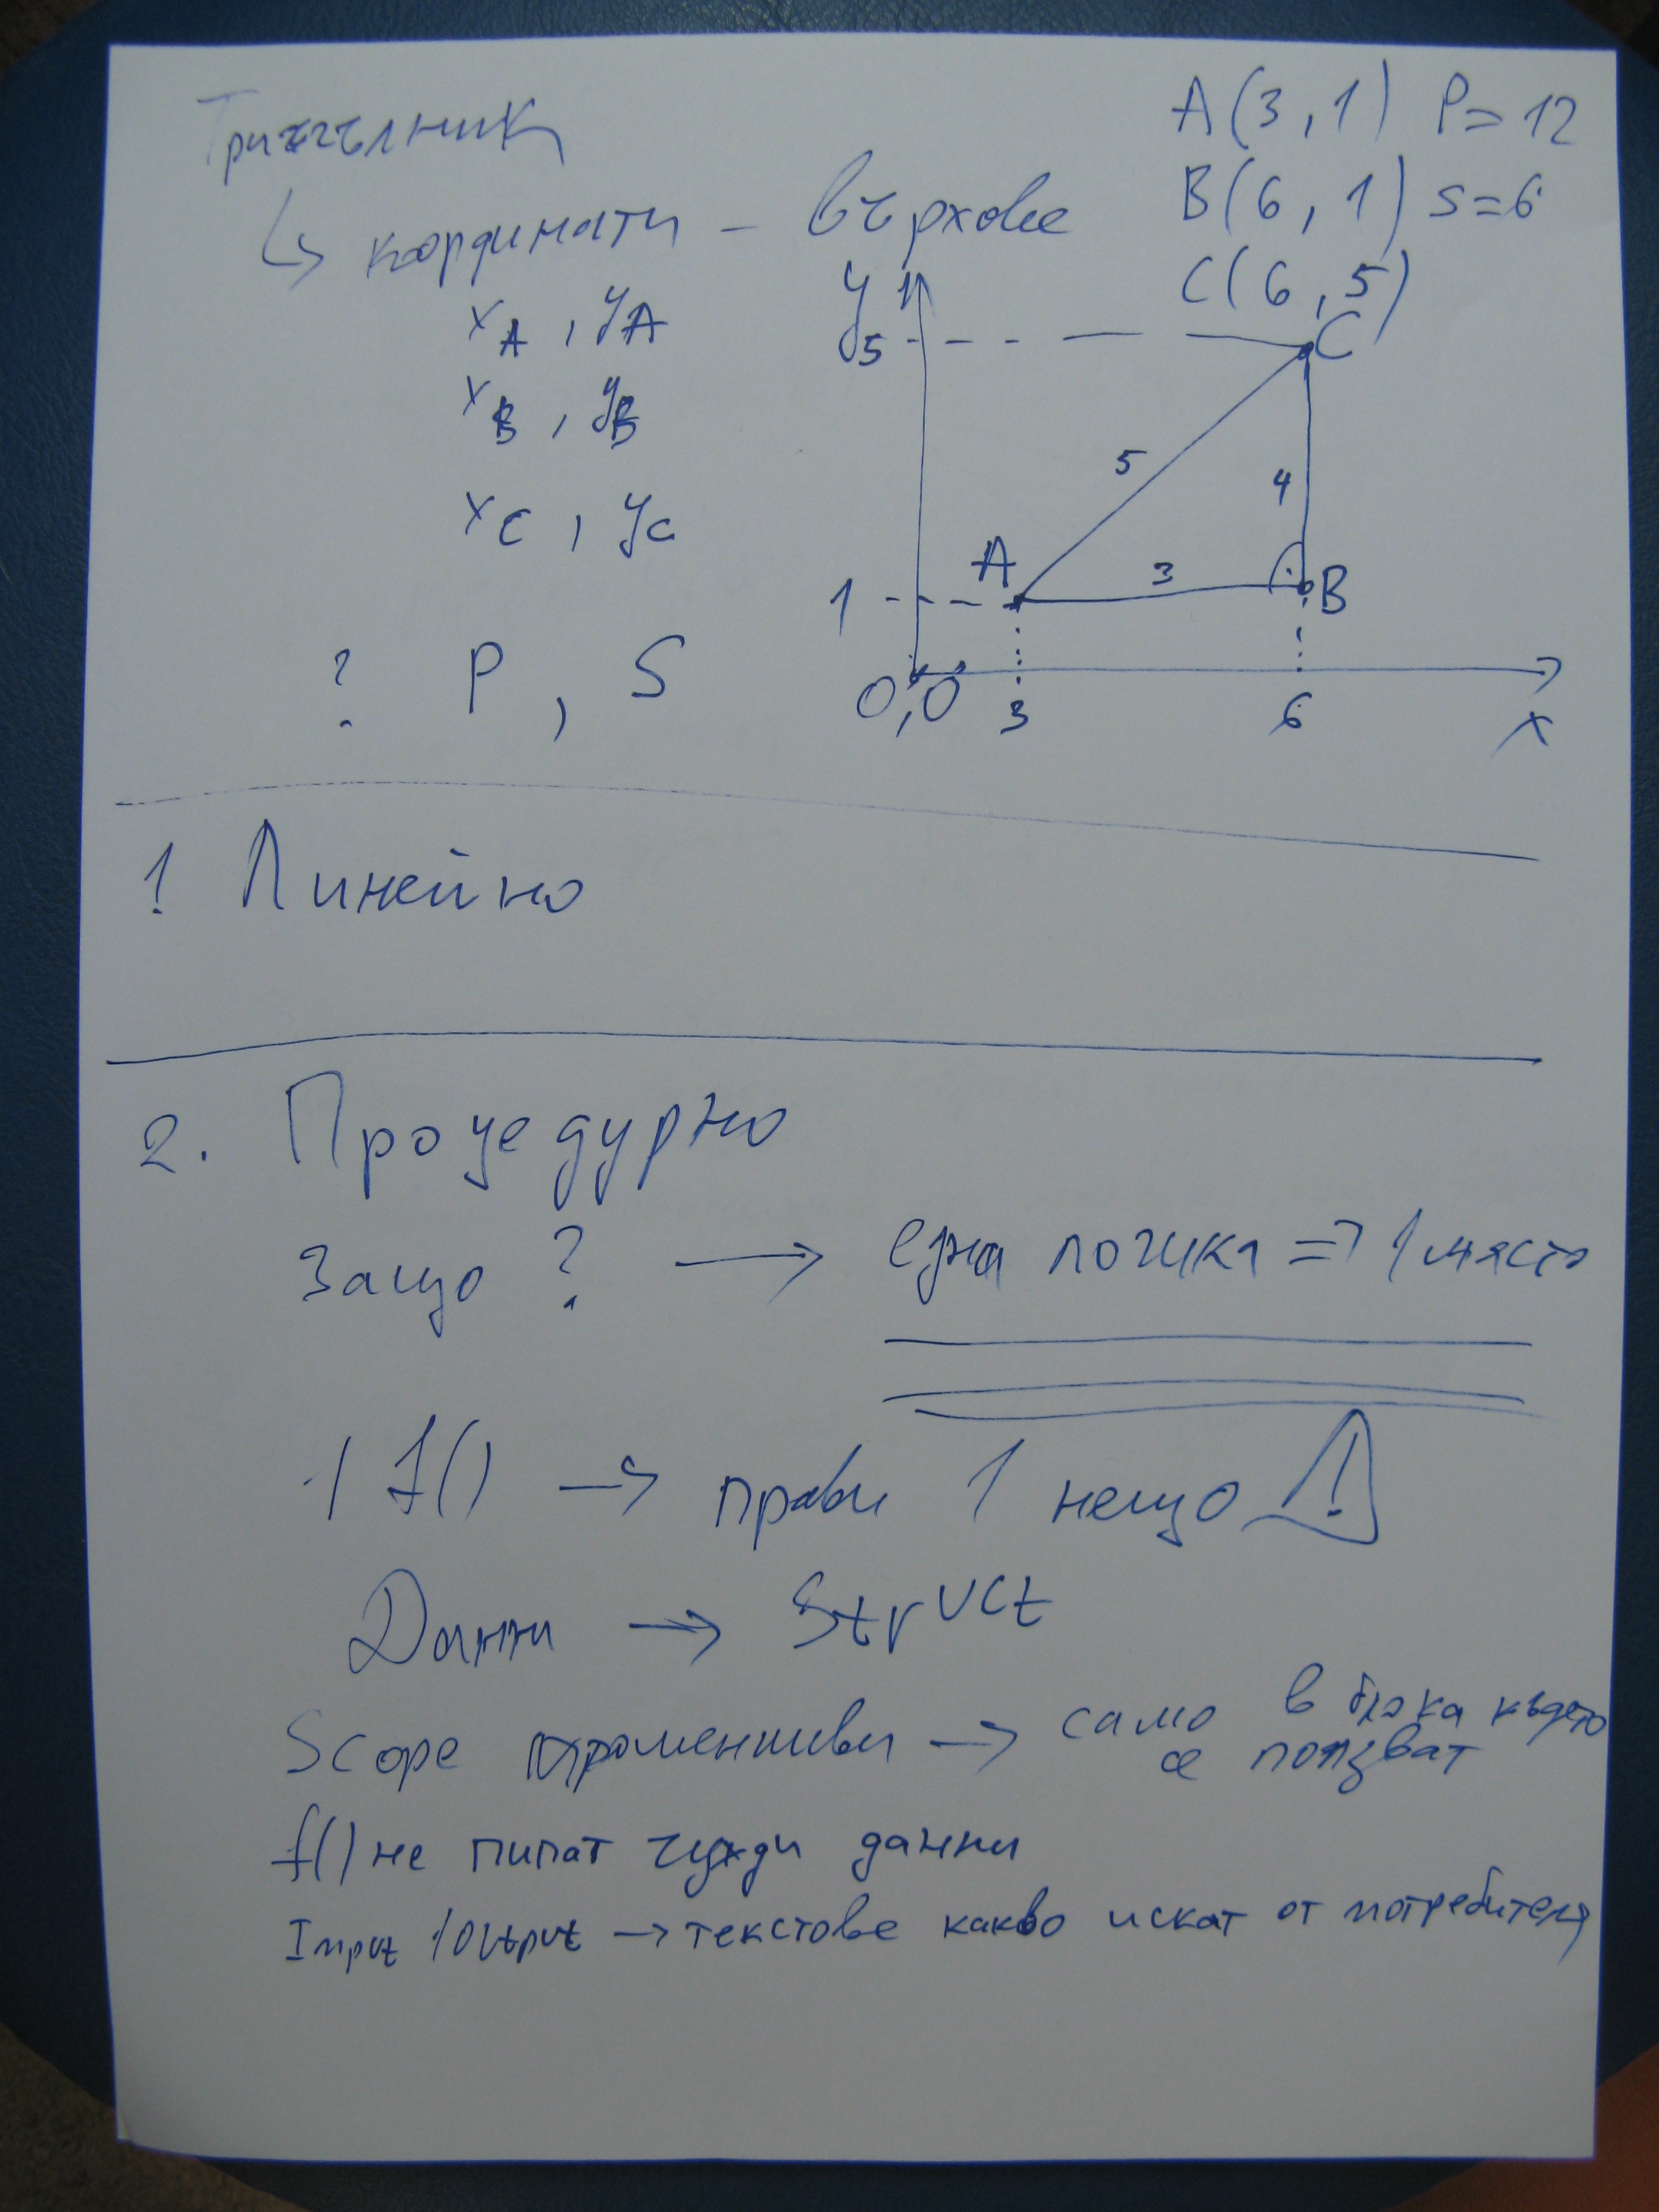 Триъгълник
A(3,1) P=12
↳ координати – върхове
B(6,1) S=6
C(6,5)
xA, yA
xB, yB
xC, yC
y
5
C
5
4
A
3
B
1
0,0
3
6
x
? P, S
1. Линейно
2. Процедурно
Защо? → една логика => 1 място
1 f() → прави 1 нещо !
Данни → Struct
Scope променливи → само в блока където
се ползват
f() не пипат чужди данни
Input / Output → текстове какво искат от потребителя